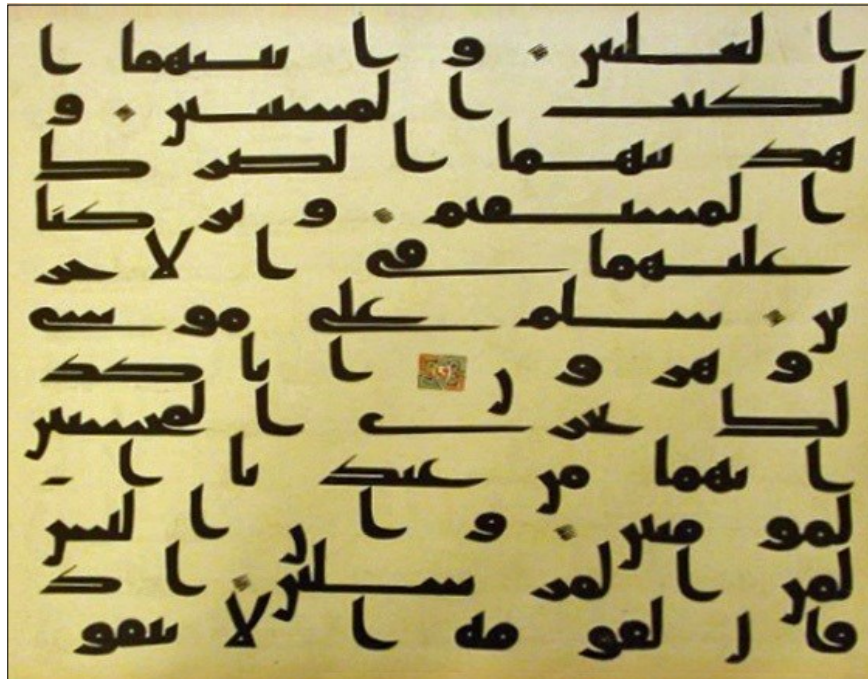 الغلبين واتينهما ا
لكتب المستبين و
هدينهما الصرط
المستقيم وتركنا
عليهما في الاخر
ين سلم على موسى
وهرون انا كذ
لك نجزي المحسنين
انهما من عبدنا ا
لمومنين وان اليس
لمن المرسلين اذ
قال لقومه الا تتقو